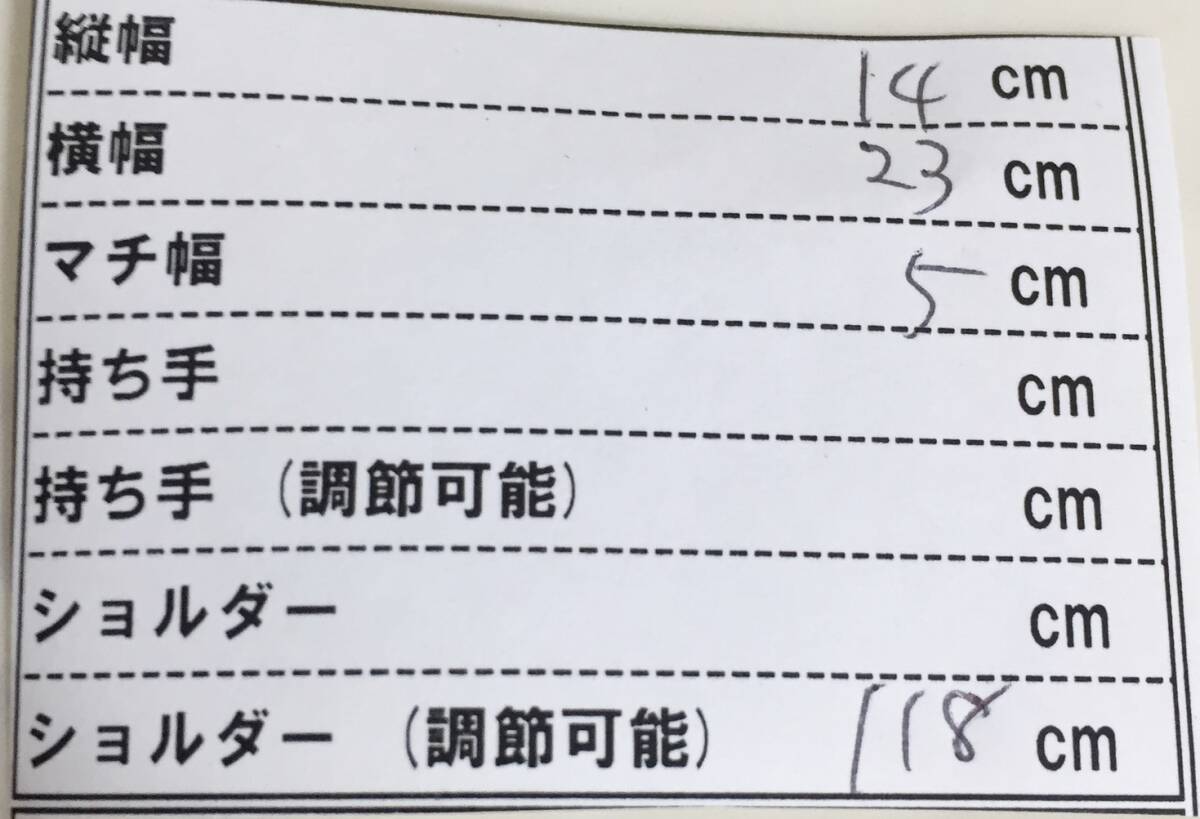 縦幅 14 cm
横幅 23 cm
マチ幅 5 cm
持ち手 cm
持ち手 (調節可能) cm
ショルダー cm
ショルダー (調節可能) 118 cm